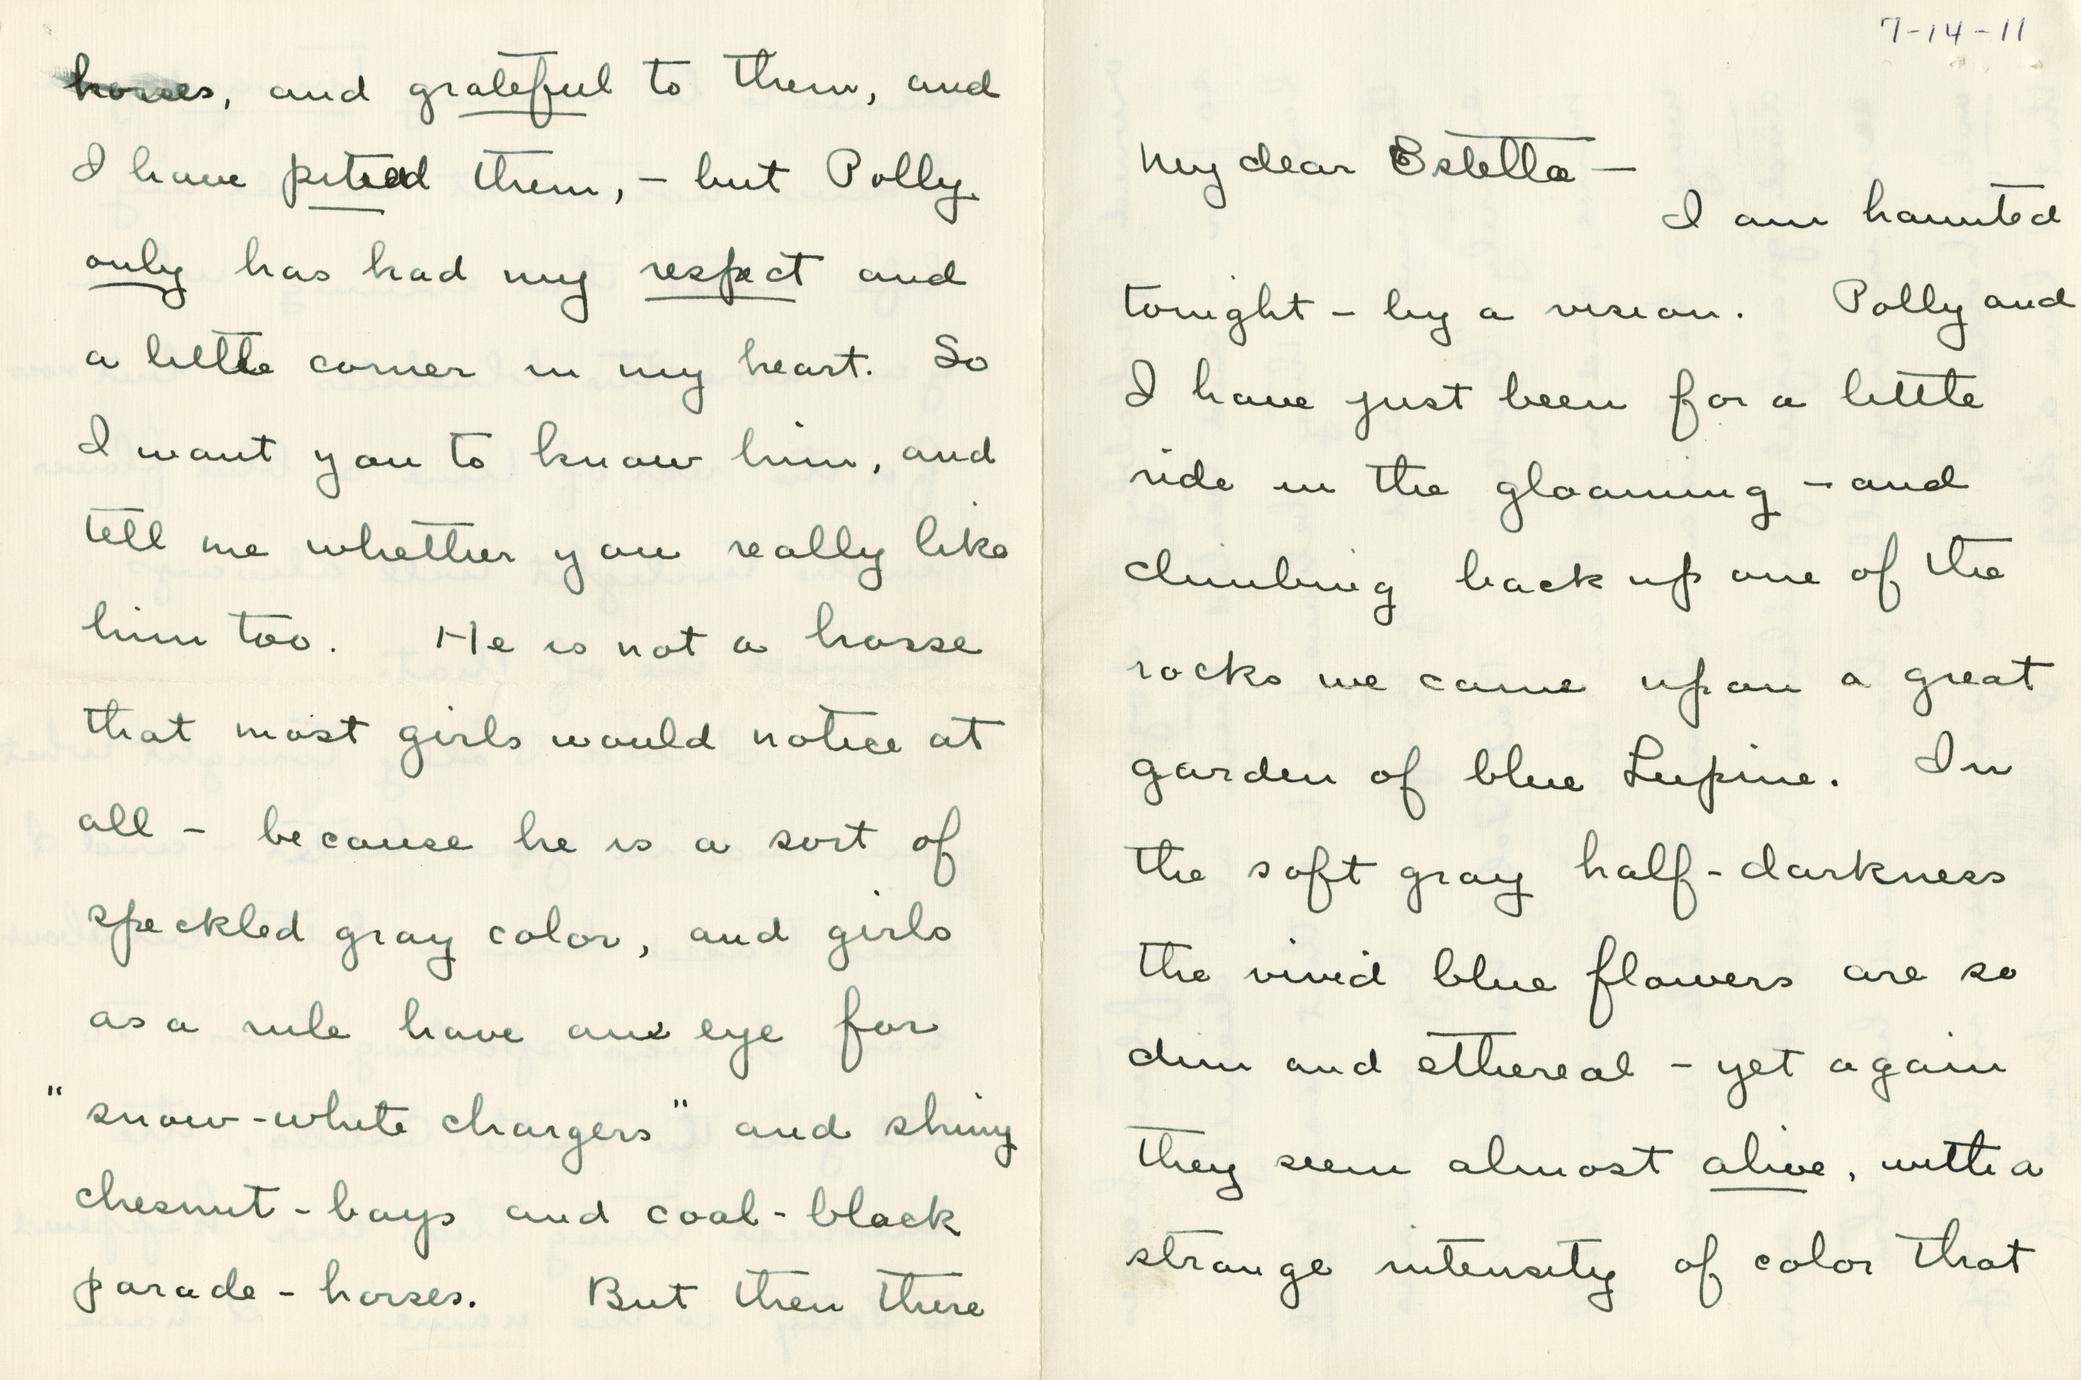 horses, and grateful to them, and
I have pitied them, - but Polly
only has had my respect and
a little corner in my heart. So
I want you to know him, and
tell me whether you really like
him too. He is not a horse
that most girls would notice at
all - because he is a sort of
speckled gray color, and girls
as a rule have an eye for
"snow-white chargers" and shiny
chesnut-bays and coal-black
parade-horses. But then there
7-14-11
My dear Estella -
I am haunted
tonight - by a vision. Polly and
I have just been for a little
ride in the gloaming - and
climbing back up one of the
rocks we came upon a great
garden of blue Lupine. In
the soft gray half-darkness
the vivid blue flowers are so
dim and ethereal - yet again
they seem almost alive, with a
strange intensity of color that